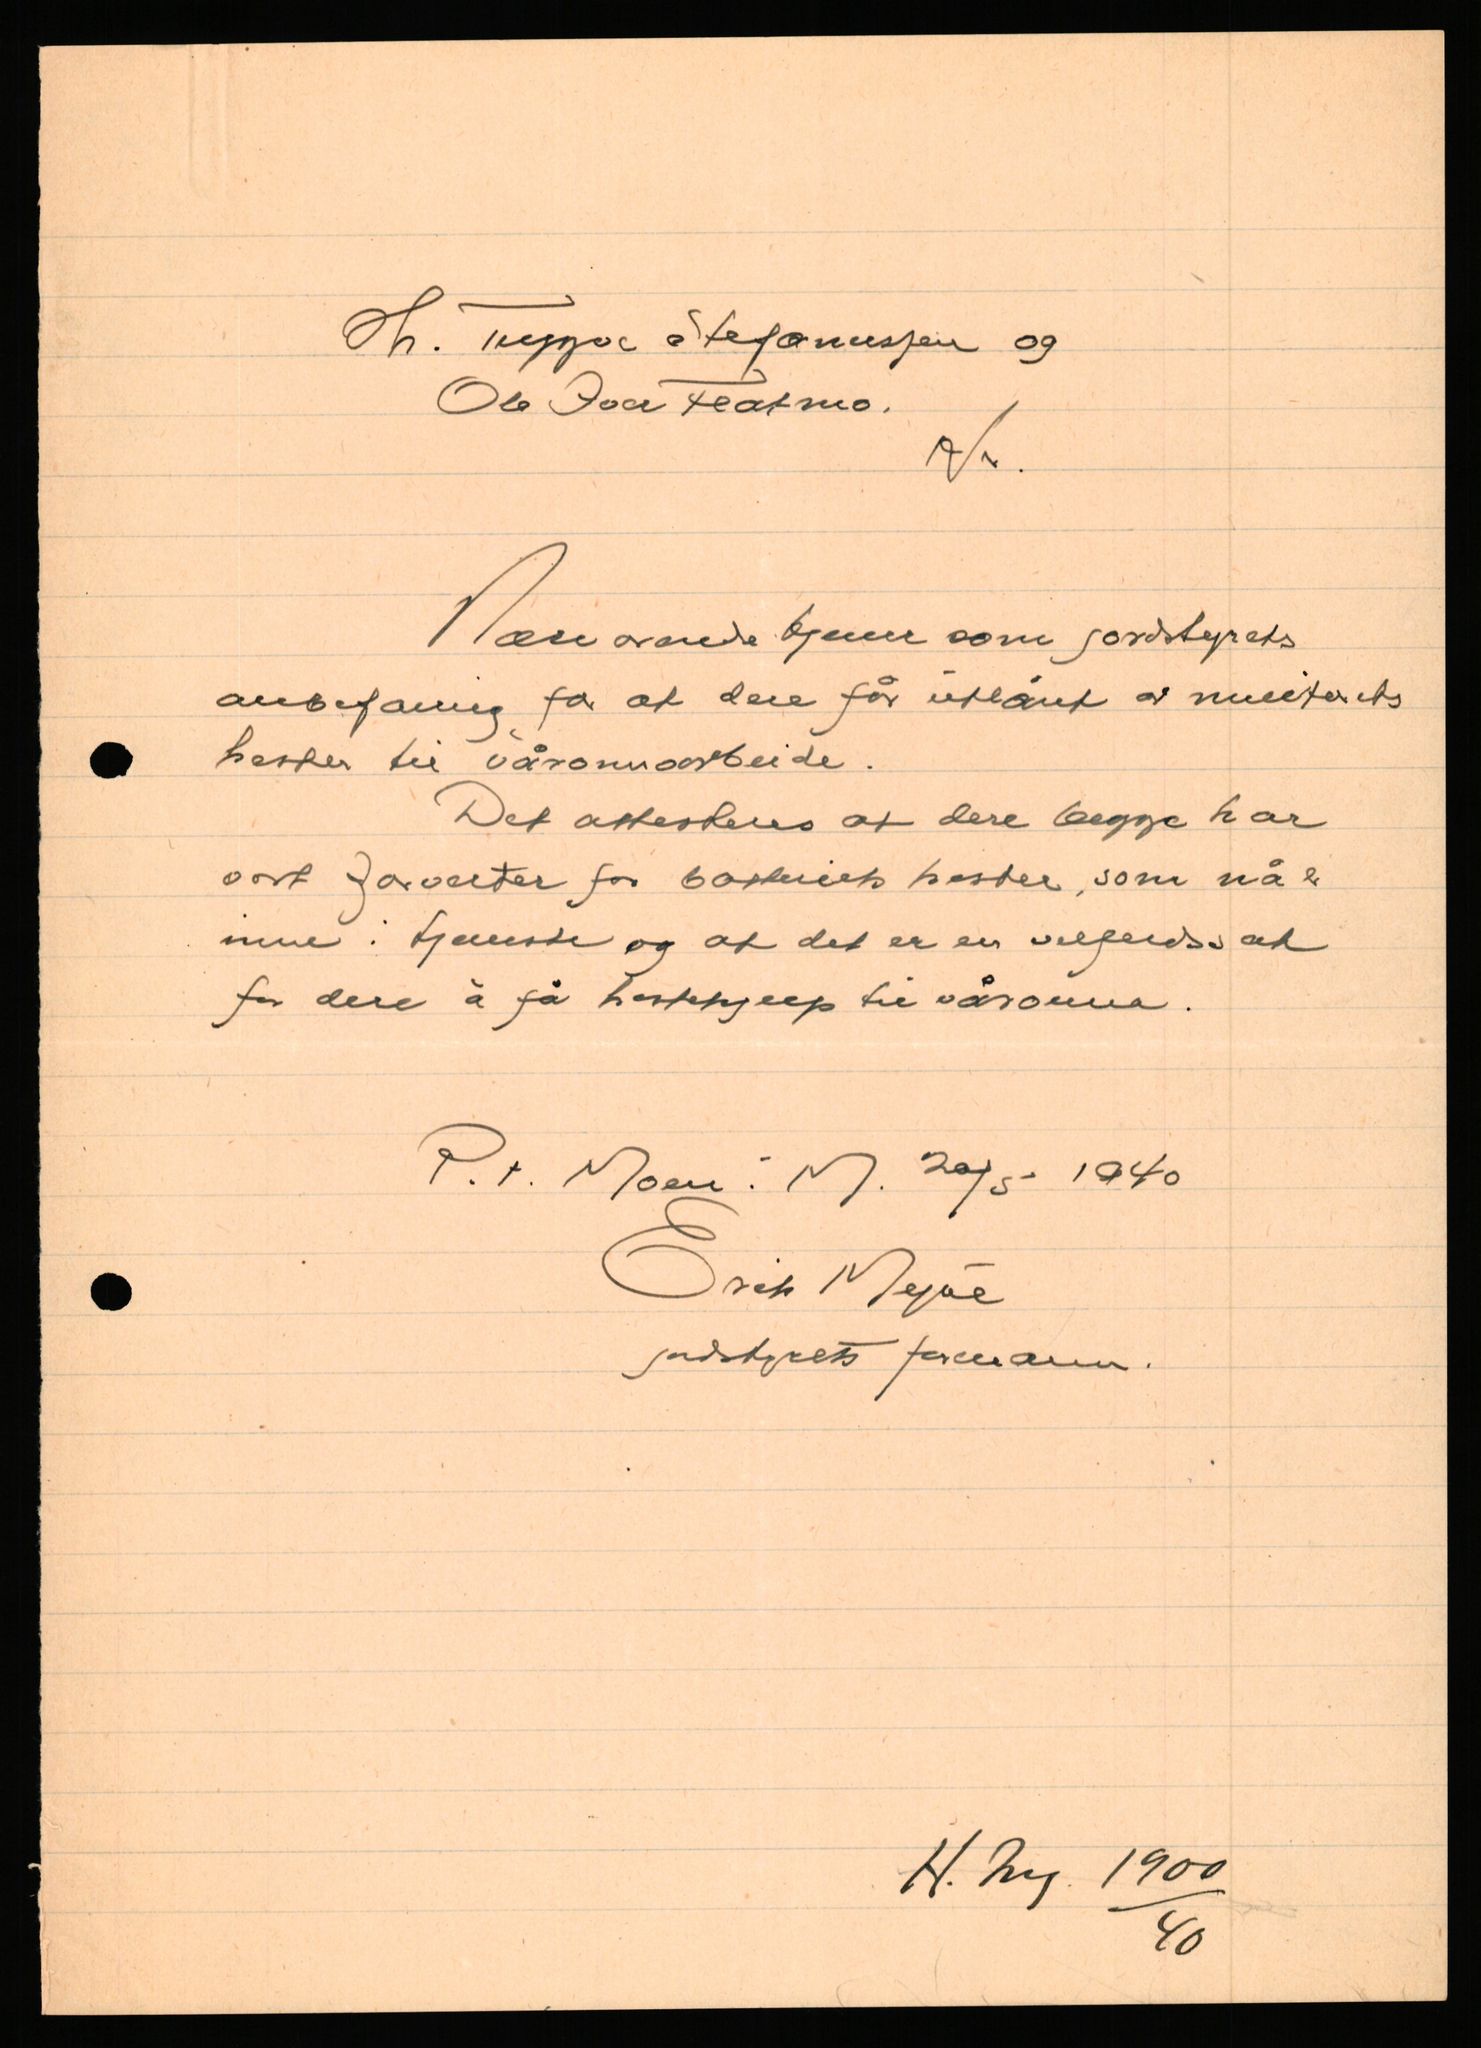 Hr. Trygve Stefanussen og
Ole Ivar Flatmo.
Nærværende tjener som jordstyrets
anbefaling for at dere får utlånt av militærets
hester til våronnarbeide.
Det attesteres at dere begge har
vært forverter for bortleide hester, som nå er
inne i tjeneste og at det er en velferdssak
for dere å få hestehjelp til våronna.
P.t. Moen i M. 20/5 1940
Erik Mejøe
jordstyrets formann.
H. 1900/40